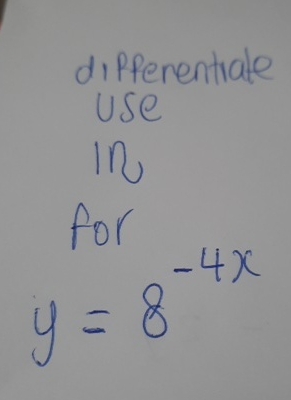 differentiate
use
in
for
y = 8^{-4x}